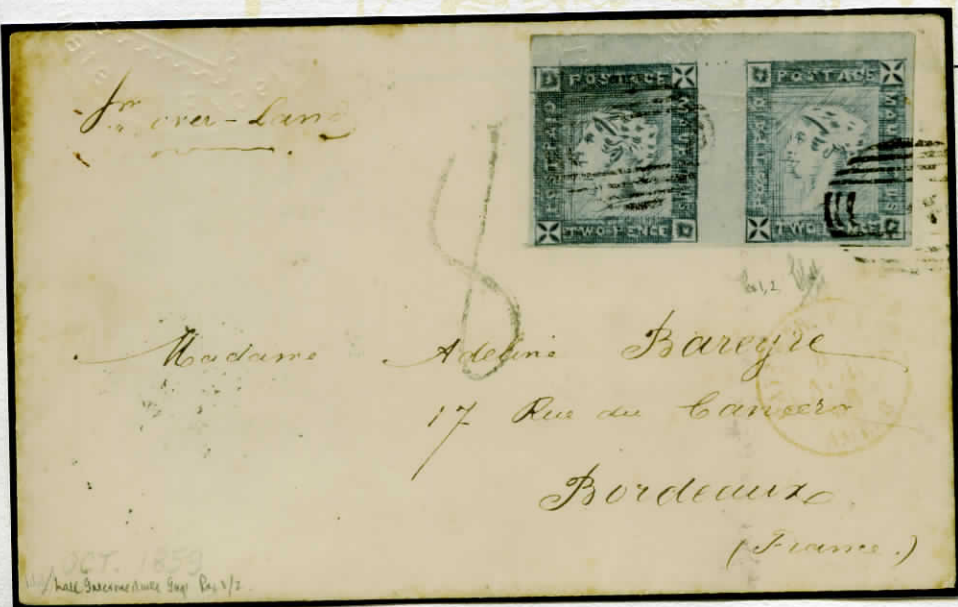 per over-Land
POSTAGE
POST PAID
MAURITIUS
TWO PENCE
POSTAGE
POST PAID
MAURITIUS
TWO PENCE
8
Pos 1,2
Madame Adeline Bareyre
17 Rue du Cancera
Bordeaux
(France.)
OCT. 1859
Intermediate Pos 1/2